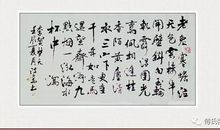 老兔寒蟾泣
天色雲樓半
開壁斜白玉輪
軋露濕團光
鸞珮相逢桂
香陌黄塵清
水三山下更變
千年如走馬
遥望齊州九
點烟一泓海水
杯中瀉